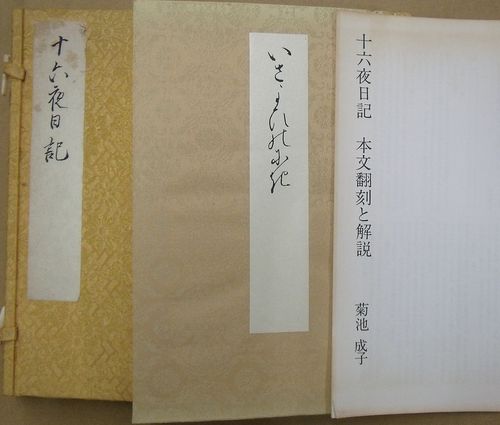 十六夜日記
いさよひのにき
十六夜日記 本文翻刻と解説
菊池 成子